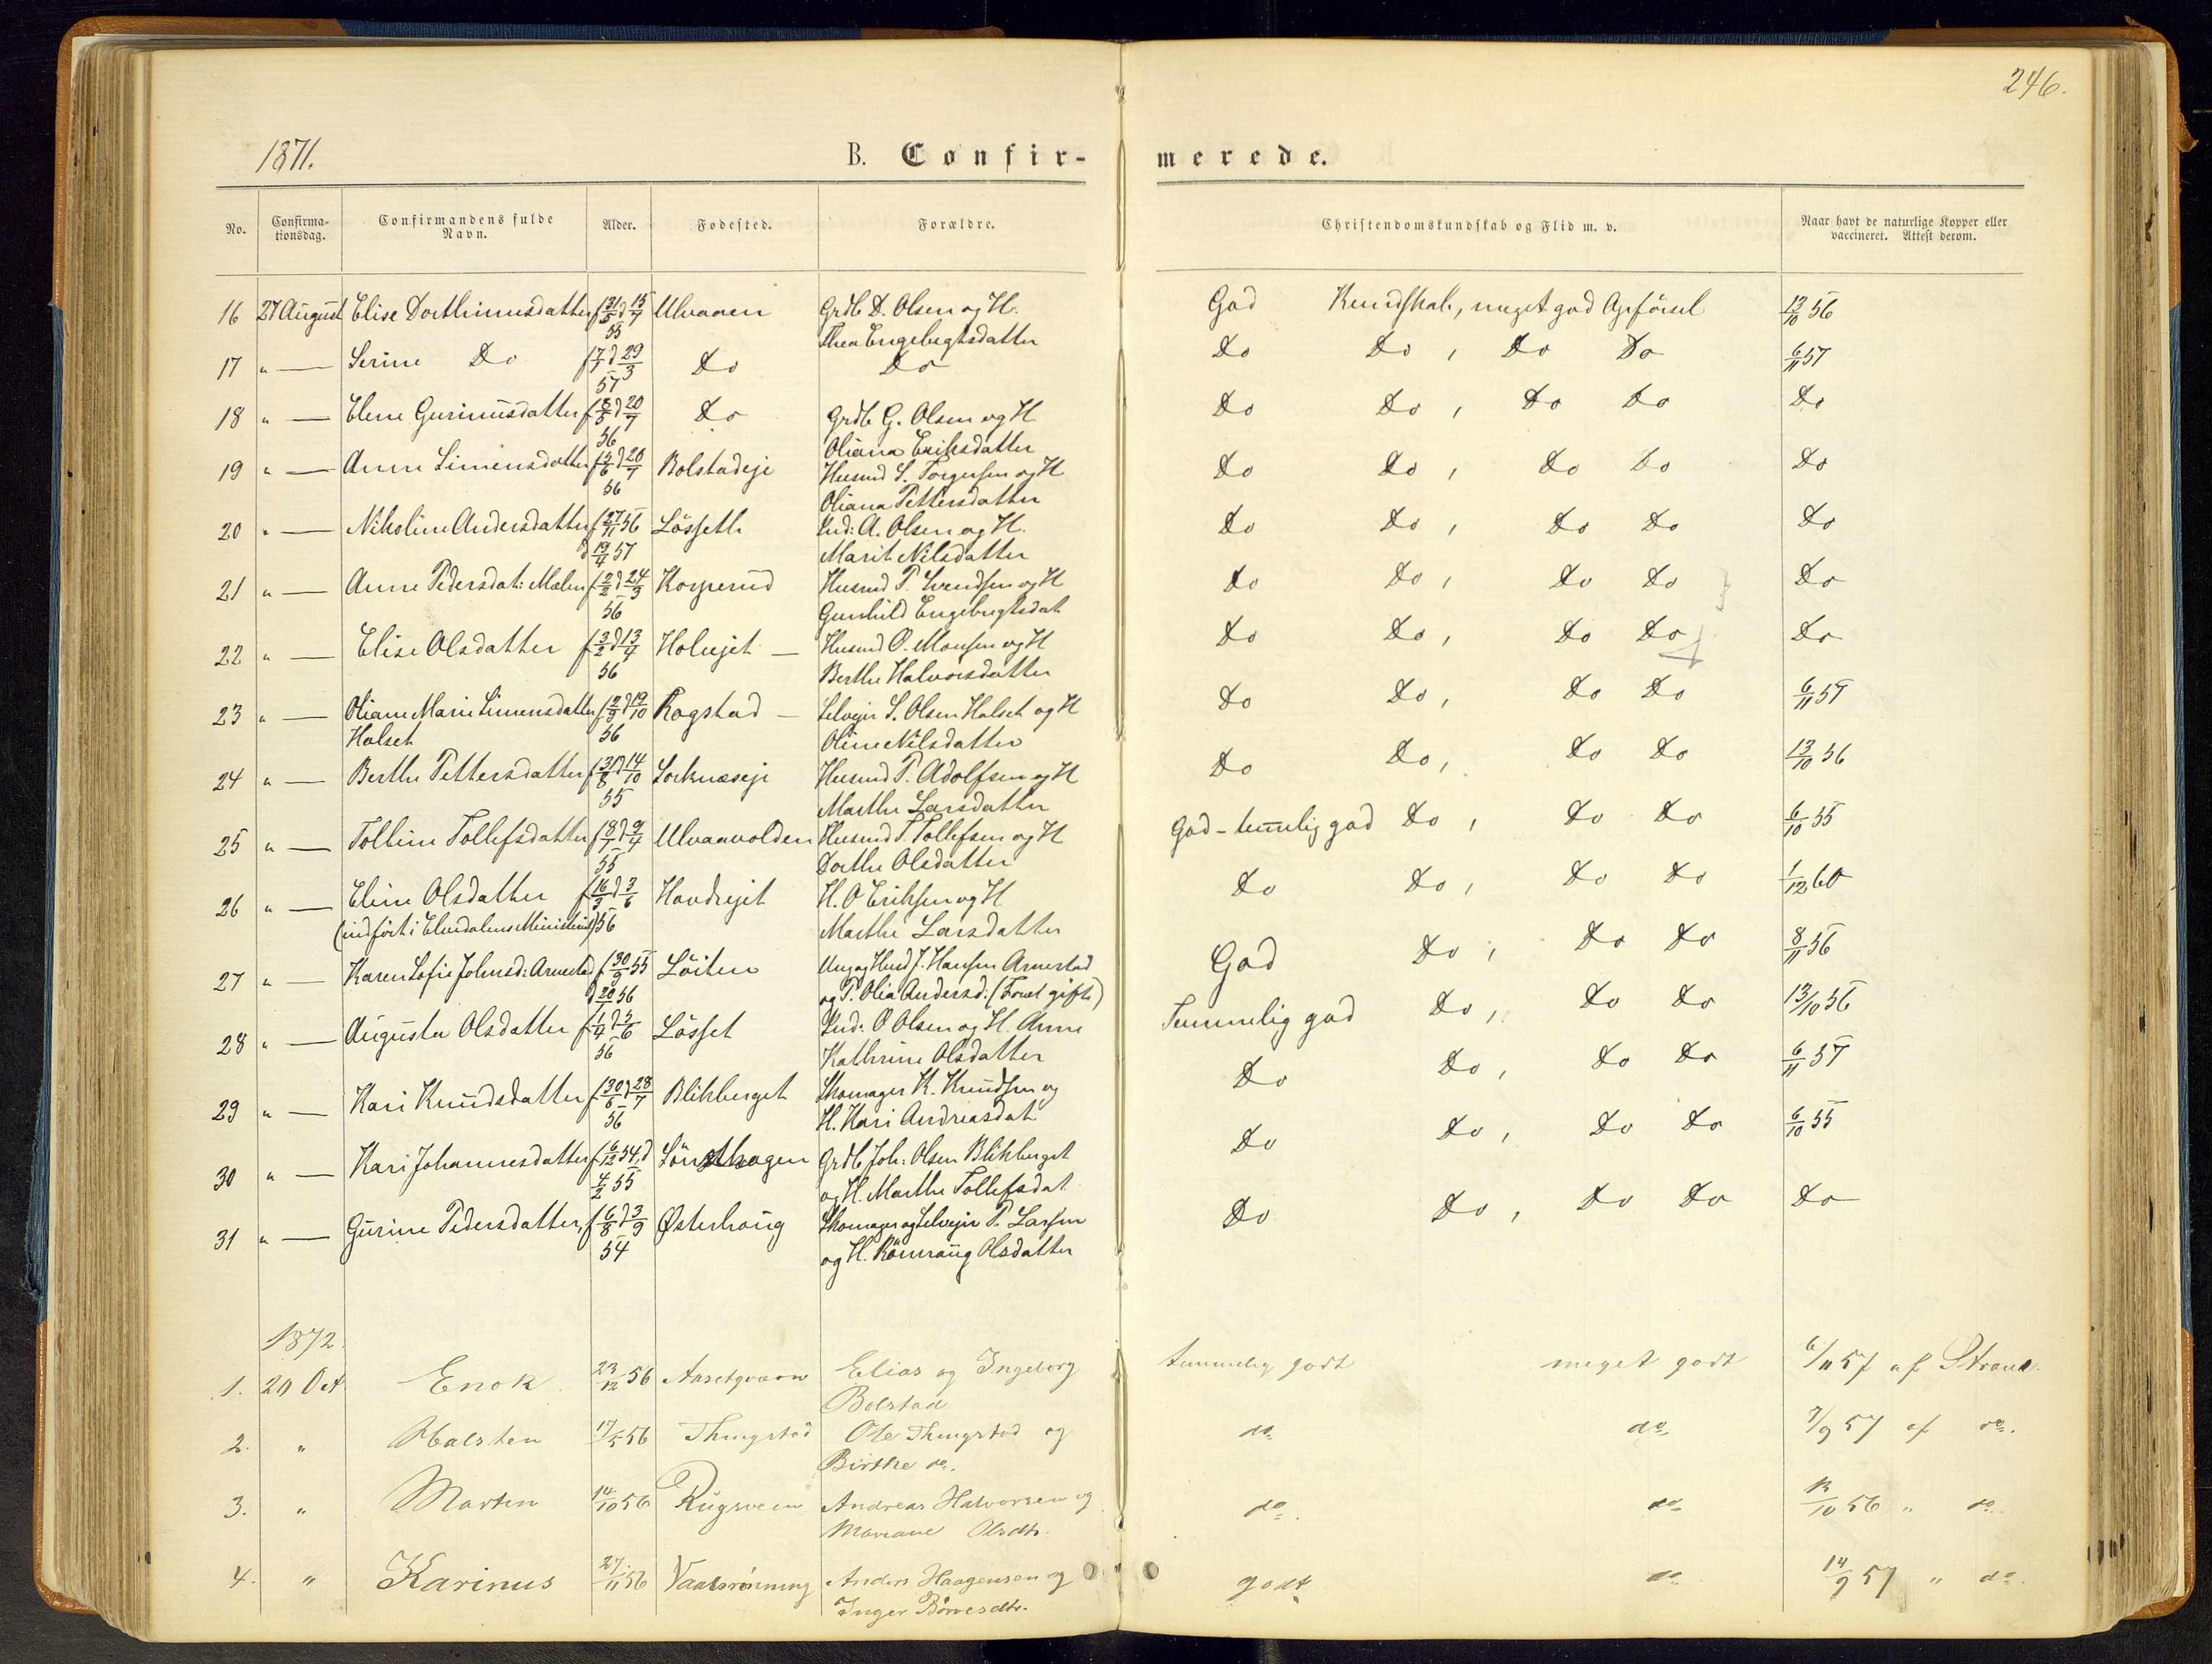 246.
1871.
B. Confir-
merede.
No.
Confirma-
tionsdag.
Confirmandens fulde
Navn.
Alder.
Fødested.
Forældre.
Christendomskundskab og Flid m. v.
Naar havt de naturlige Kopper eller
vaccineret. Attest derom.
16 27 August Elise Dorthinusdatter f 31/5 d 15/7 Ulvaaen Grdb D. Olsen og H. God Kundskab, meget god Opførsel 13/10 56
55 Thea Engebregtsdatter
17 " — Serine Do f 7/1 d 29/3 Do Do Do Do, Do Do 6/11 57
57
18 " — Elene Gurinusdatter f 8/5 d 20/7 Do Grdb G. Olsen og H Do Do, Do Do Do
56 Oliana Eriksdatter
19 " — Anne Simensdatter f 5/6 d 20/7 Bolstadeje Husmd S. Torgersen og H Do Do, Do Do Do
56 Oliana Pettersdatter
20 " — Nikoline Andersdatter f 27/11 56 Løsseth Ind: A. Olsen og H. Do Do, Do Do Do
d 19/4 57 Marit Nilsdatter
21 " — Anne Pedersdat: Mælen f 2/2 d 24/3 Korperud Husmd P. Svendsen og H Do Do, Do Do Do
56 Gunhild Engebregtsdat
22 " — Elise Olsdatter f 3/2 d 13/4 Holiejet — Husmd O. Monsen og H Do Do, Do Do Do
56 Berthe Halvorsdatter
23 " — Oliane Marie Simensdatter f 2/9 d 19/10 Rogstad — Selvejer S. Olsen Halset og H Do Do, Do Do 6/11 57
Halset 56 Oline Nilsdatter
24 " — Berthe Pettersdatter f 31/8 d 14/10 Lorknæseje Husmd P. Adolfsen og H Do Do, Do Do 13/10 56
55 Marthe Larsdatter
25 " — Tolline Tollefsdatter f 8/1 d 9/4 Ulvaavolden Husmd T. Tollefsen og H God - temelig god Do, Do Do 6/10 55
55 Dorthe Olsdatter
26 " — Eline Olsdatter f 16/3 d 3/6 Hovdsejet H. O Eriksen og H Do Do, Do Do 1/12 60
(indført i Elvedalens Ministerial) 56 Marthe Larsdatter
27 " — Karen Sofie Johnsd: Arnestad f 30/9 55 Løiten Ung og Husd J. Hansen Arnestad God Do, Do Do 8/11 56
56 og P. Olia Andersd: (Forst gifte)
28 " — Augusta Olsdatter f 1/4 d 5/6 Løsset Ind: O Olsen og H. Anne Temmelig god Do, Do Do 13/10 56
56 Kathrine Olsdatter
29 " — Kari Knudsdatter f 30/6 d 28/7 Blikberget Skomager K. Knudsen og Do Do, Do Do 6/11 57
56 H. Kari Andreasdat
30 " — Kari Johannesdatter f 6/12 54, d Lønsthagen Grdb Joh: Olsen Blikberget Do Do, Do Do 6/10 55
4/2 55 og H. Marthe Tollefsdat
31 " — Gurine Pedersdatter, f 6/8 d 3/9 Østerhaug Skomager og Selvejer P. Larsen Do Do, Do Do Do
54 og H. Rønnaug Olsdatter
1872.
1. 20 Oct Enok 23/12 56 Aasetqværn Elias og Ingeborg temmelig godt meget godt 6/11 57 af Strand.
Bolstad
2. " Halsten 17/5 56 Thingstad Ole Thingstad og do do 7/9 57 af do.
Birthe do.
3. " Marten 14/10 56 Rugsveen Andreas Halvorsen og do. do 13/10 56 " do.
Mariane Olsdtr.
4. " Karinus 27/11 56 Vaalsrønning Anders Haagensen og godt do 14/9 57 " do.
Inger Børresdtr.